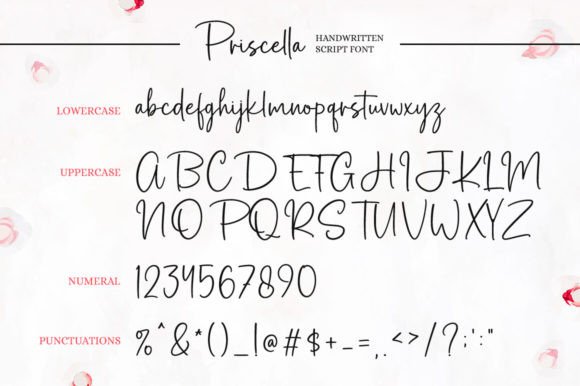 Priscella
HANDWRITTEN
SCRIPT FONT
LOWERCASE
abcdefghijklmnopqrstuvwxyz
UPPERCASE
ABCDEFGHIJKLM
NOPQRSTUVWXYZ
NUMERAL
1234567890
PUNCTUATIONS
%^&*()_!@#$+-=,.<>/?;':"